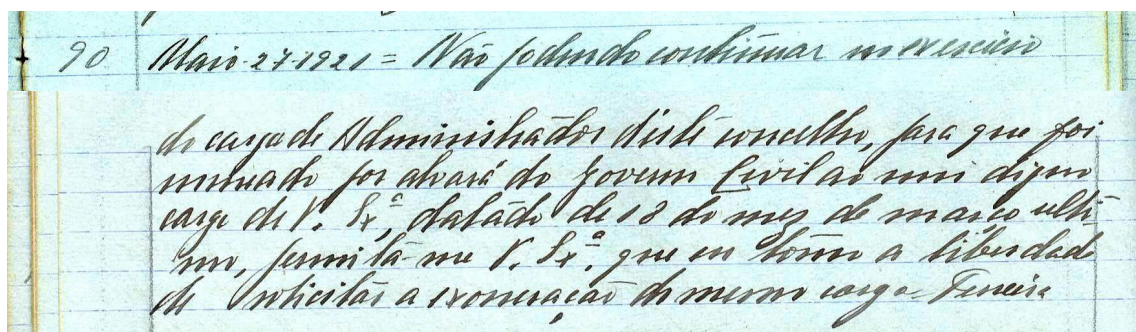 90 Maio-27-1921 = Não podendo continuar no exercicio
do cargo de Administrador deste concelho, para que foi
nomeado por alvará do Governo Civil ao mui digno
cargo de V. Sx.ª, datado de 18 do mez de março ulti-
mo, permita-me V. Sx.ª que eu tomo a liberdade
de solicitar a exoneração do mesmo cargo- Ferreira